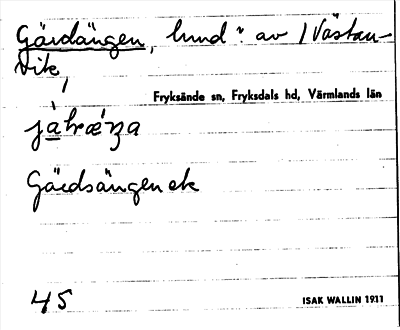 Gärdängen, lund: av / Västan-
vik,
Fryksände sn, Fryksdals hd, Värmlands län
Gärdsängen ek
45
ISAK WALLIN 1911